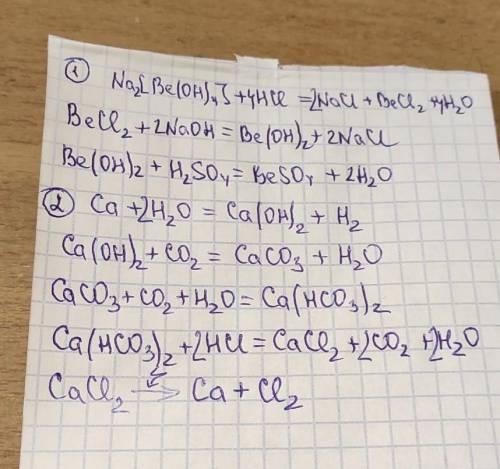 ①
Na₂[Be(OH)₄] + 4HCl = 2NaCl + BeCl₂ + 4H₂O
BeCl₂ + 2NaOH = Be(OH)₂ + 2NaCl
Be(OH)₂ + H₂SO₄ = BeSO₄ + 2H₂O
② Ca + 2H₂O = Ca(OH)₂ + H₂
Ca(OH)₂ + CO₂ = CaCO₃ + H₂O
CaCO₃ + CO₂ + H₂O = Ca(HCO₃)₂
Ca(HCO₃)₂ + 2HCl = CaCl₂ + 2CO₂ + 2H₂O
CaCl₂ → Ca + Cl₂